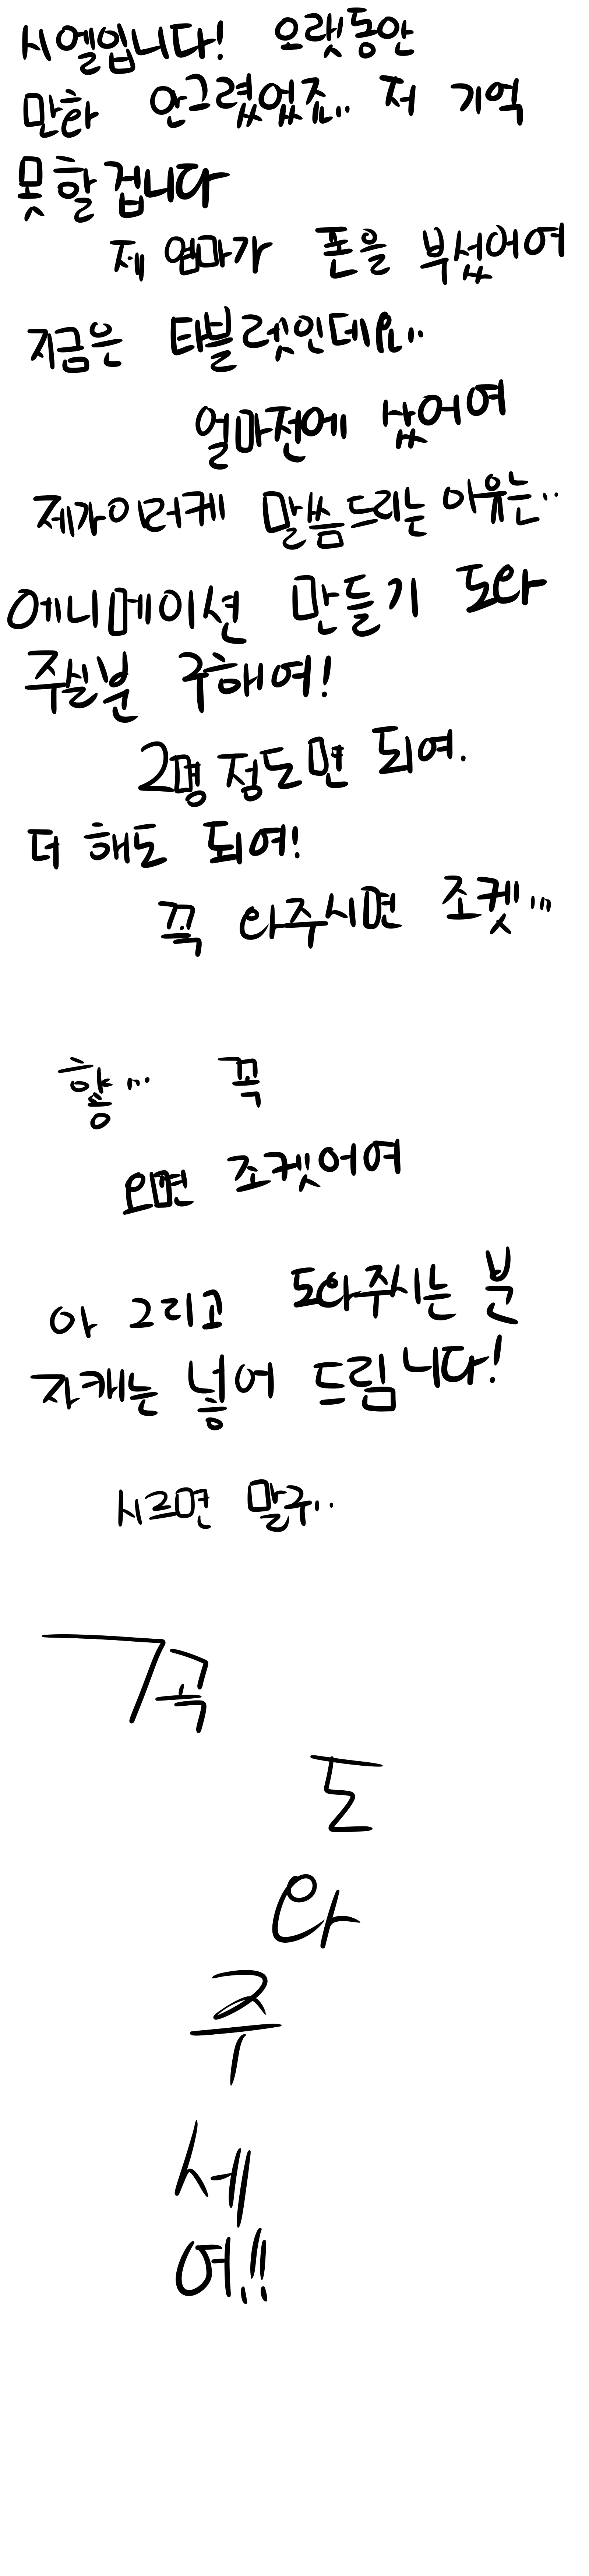 시엘입니다! 오랫동안
만하 안그렸었죠... 저 기억
못할겁니다
제 엄마가 폰을 부셨어여
지금은 타블렛인데요..
얼마전에 샀어여
제가이러케 말씀드리는 이유는..
에니메이션 만들기 도와
주실분 구해여!
2명정도면 되여.
더 해도 되여!
꼭 와주시면 조켓...
힝... 꼭
오면 조켓어여
아 그리고 도와주시는 분
자캐는 넣어 드림니다!
시르면 말구..
꼭
도
와
주
세
여!!